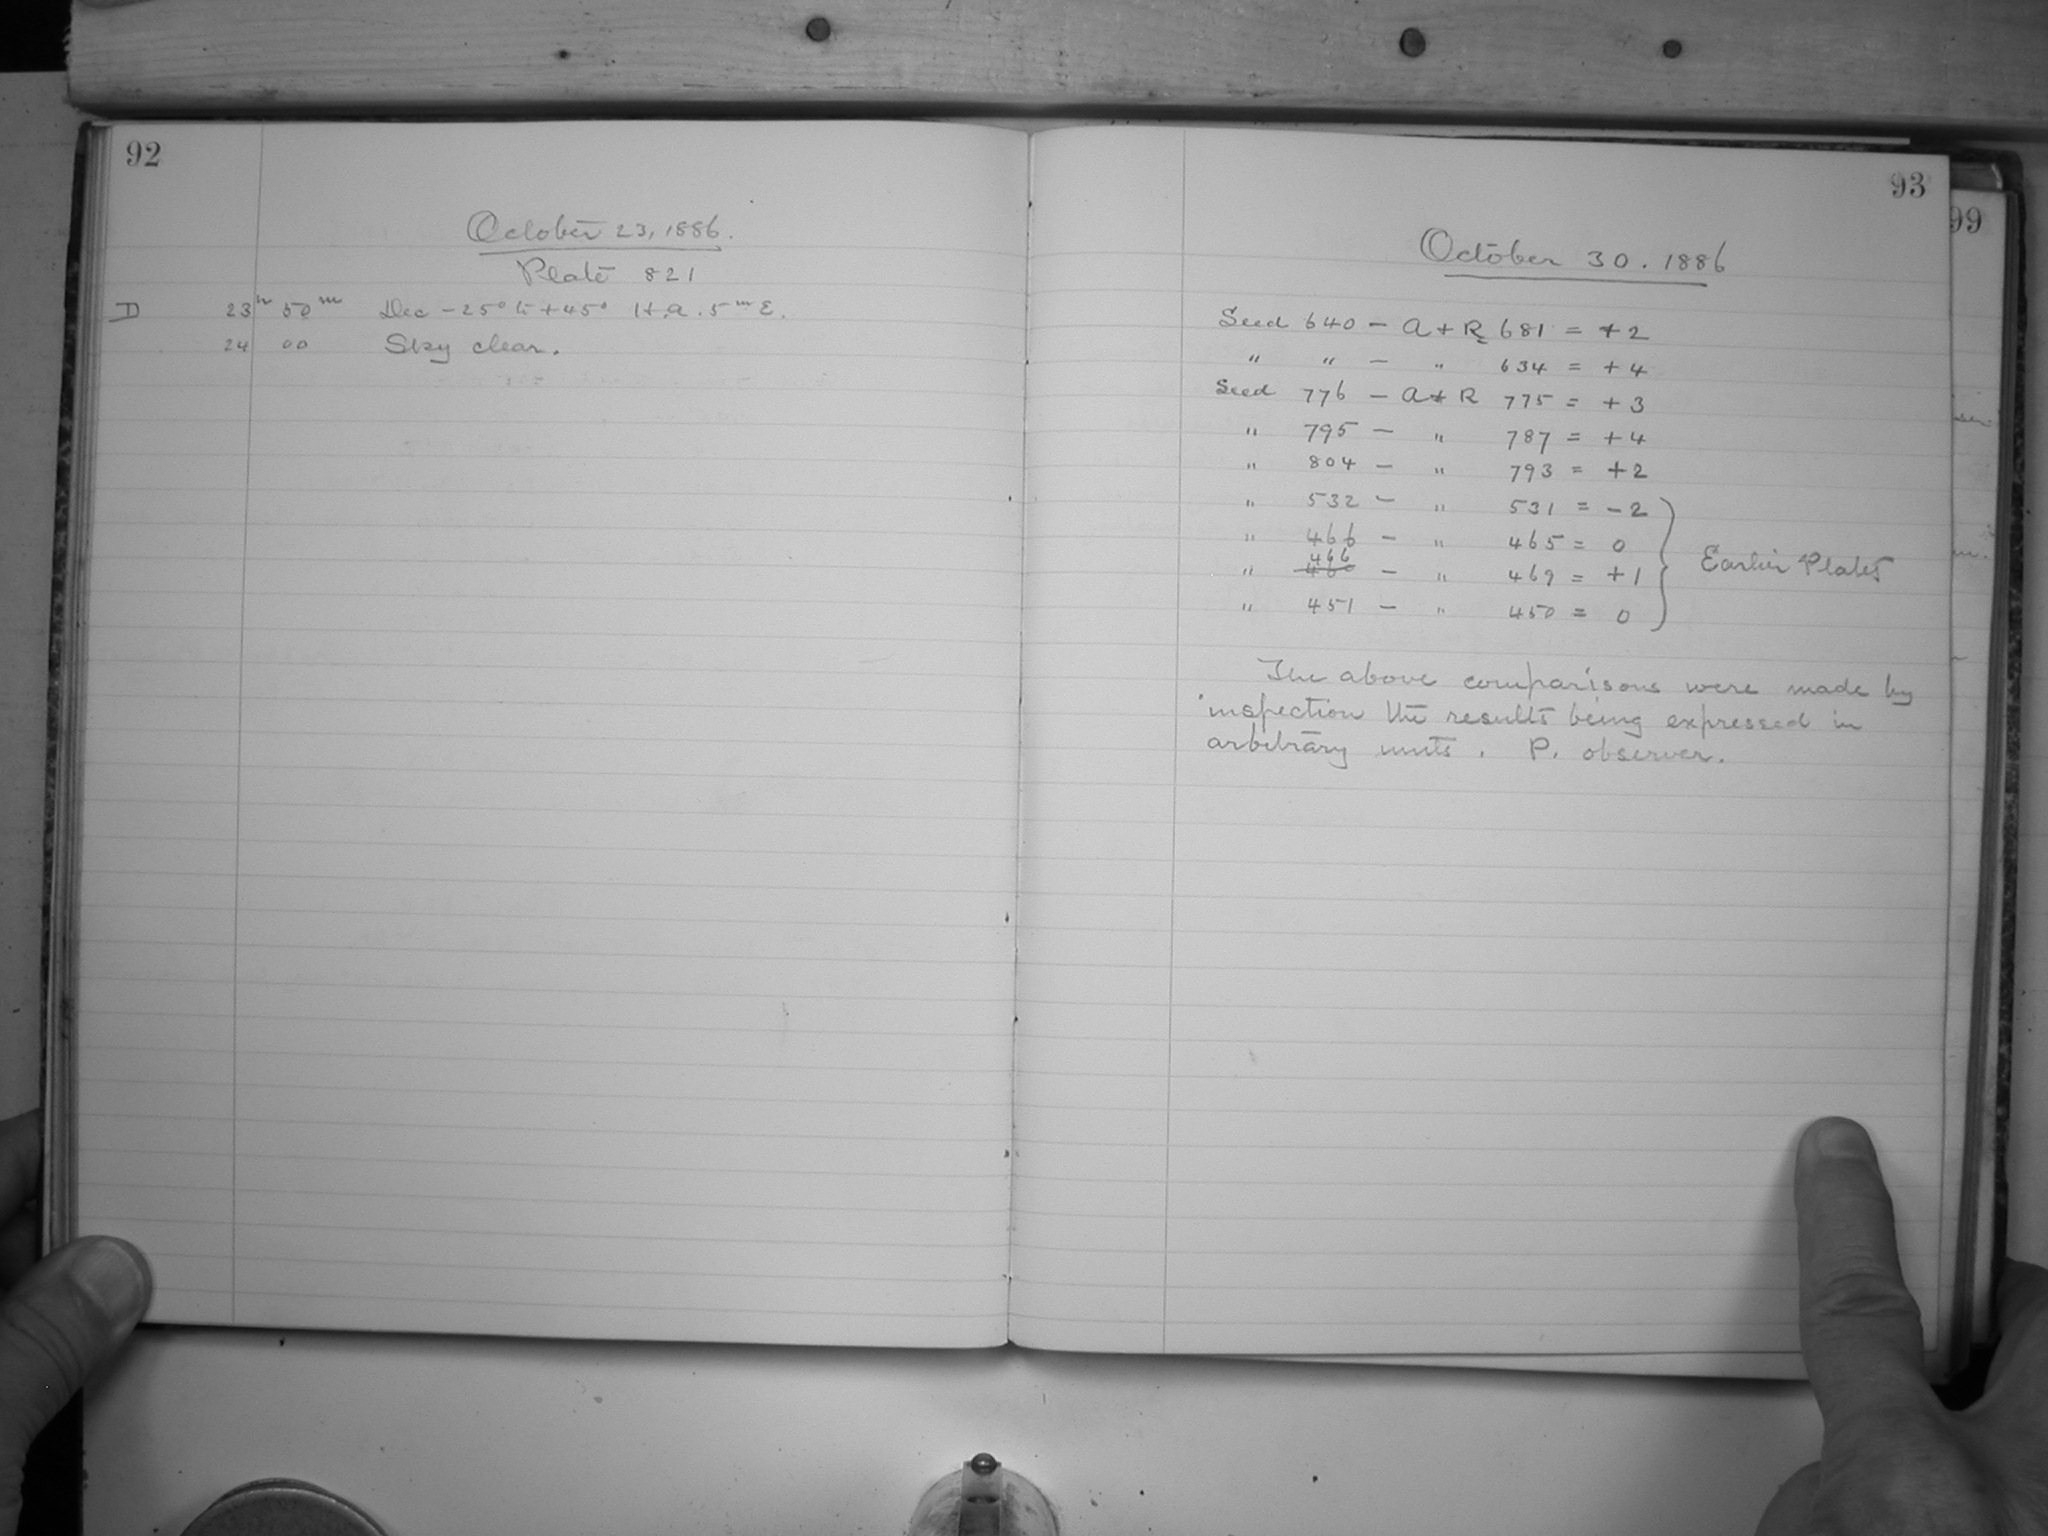 92
October 23, 1886.
Plate 821
D 23h 50m Dec -25° to +45° H.a. 5m E.
24 00 Sky clear.
93
99
October 30. 1886
Seed 640 - A + R 681 = +2
" " - " 634 = +4
Seed 776 - A + R 775 = +3
" 795 - " 787 = +4
" 804 - " 793 = +2
" 532 - " 531 = -2
" 466 - " 465 = 0
466
" 460 - " 469 = +1
Earlier Plates
" 451 - " 450 = 0
The above comparisons were made by
inspection the results being expressed in
arbitrary units. P. observer.